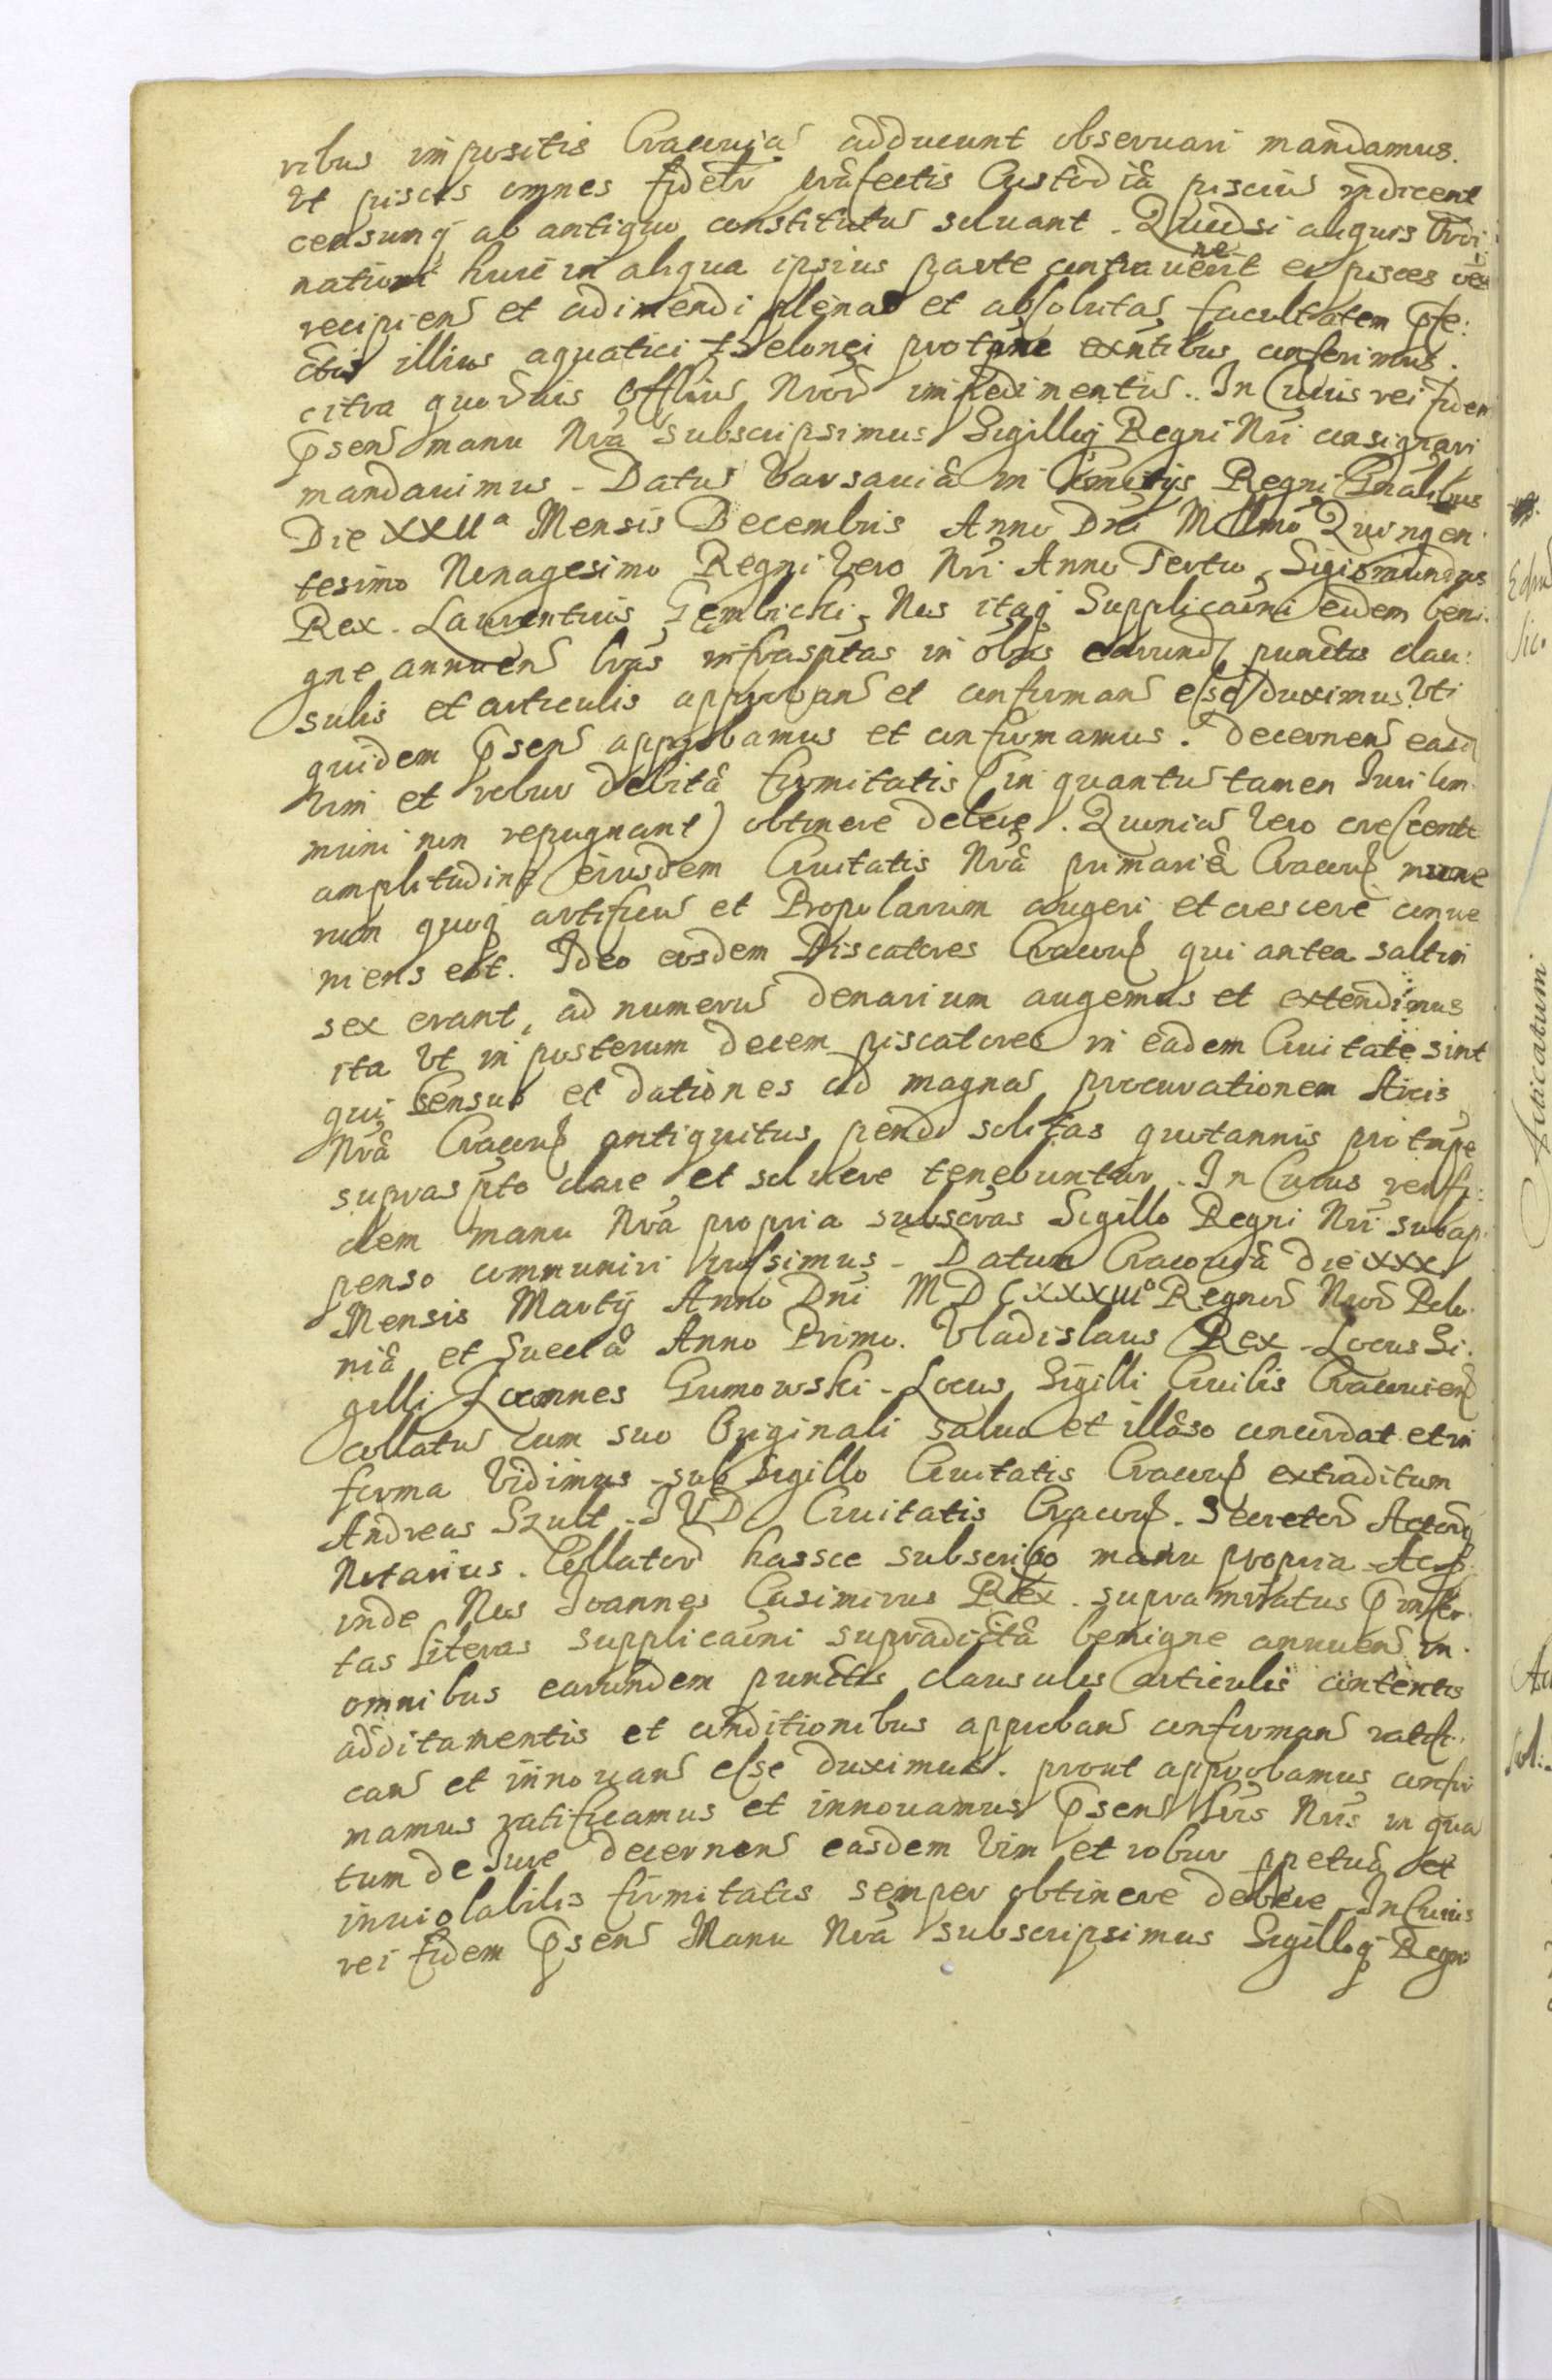 ribus impositis Cracouiã adducunt obseruari mandamus.
Vt pisces omnes fidelr præfectis Custodiæ pisciũ indicent
censumq ab antiquo constitutũ soluant. Quodsi aliquis Ordi
nationi huic in aliqua ipsius parte contrauenerit ei pisces
recipienð et adimendi plenaõ et absolutaõ facultatem Pfe:
ctis illius aquatici Thelonei protpre exñtibus conferimus.
citra quoruis Offliũ Nrorũ impedimentũ. In Cuius rei fidem
Psenð manu Nrã subscripsimus Sigillũq Regni Nri consignari
mandauimus. Datũ Varsauiæ in Comitijs Regni Gnalibus
Die XXIIa Mensis Decembris Anno Dni Millmo Quingen:
tesimo Nonagesimo Regni Vero Nri Anno Tertio, Sigismundus
Rex. Laurentius Gembicki. Nos itaq Supplicaõni eidem beni:
gne annuenð lras infrasptas in oibus earundę punctis clau:
sulis et articulis approbanð et confirmanð esse duximus Vti
quidem Psenð approbamus et confirmamus. Decernenð easdę
Vim et robur debitæ firmitatis (in quantũ tamen Iuri Com
muni non repugnant) obtinere debere. Quoniã Vero crescente
amplitudine eiusdem Ciuitatis Nræ primariæ Cracouę nume
rum quoq artificũ et Popularium augeri et crescere conue
niens est. Ideo eosdem Piscatores Cracouę qui antea saltim
sex erant, ad numerũ denarium augemus et extendimus
ita Vt in posterum decem piscatores in eadem Ciuitate sint
qui Census et dationes ad magnaõ procurationem Arcis
Nræ Cracouę antiquitus pendi solitas quotannis pro tmpe
suprasпto dare et soluere tenebuntur. In Cuius rei fi:
dem manu Nrã propria subscras Sigillo Regni Nri subap
penso communiri iussimus. Datum Cracouiæ Die XXX
Mensis Martij Anno Dni MDCXXXIIIo Regnorũ Nrorũ Polo
niæ et Sueciæ Anno Primo. Vladislaus Rex. Locus Si.
gilli Ioannes Gumowski. Locus Sigilli Ciuilis Cracouienð
collatũ cum suo Originali saluo et illæso concordat et in
forma Vidimus sub Sigillo Ciuitatis Cracouę extraditum
Andreas Szult. I V D Ciuitatis Cracouę. Secretorũ Actorũq
Notarius. Collatorũ hassce subscripo manu propria. Ac
inde Nos Ioannes Casimirus Rex. supra mtatus Pinser:
tas literas supplicaõni supradictæ benigne annuenð in.
omnibus earundem punctis clausulis articulis contentis
additamentis et conditionibus approbanð confirmanð ratifi:
canð et innouanð esse duximus. prout approbamus confir
mamus ratificamus et innouamus Psenð lris Nris in quã
tum de Iure decernenð easdem Vim et robur ppetuæ et
inuiolabilis firmitatis semper obtinere debere. In Cuius
rei fidem Psenð Manu Nrã subscripsimus Sigilloq Regni
Acticatum